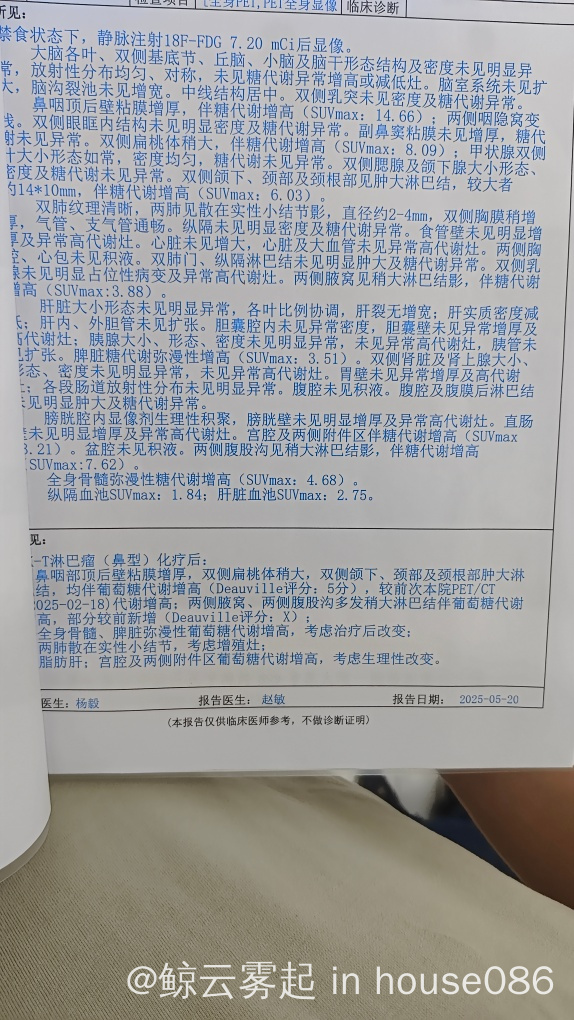 检查项目 [全身PET,PET全身显像 临床诊断
所见:
禁食状态下，静脉注射18F-FDG 7.20 mCi后显像。
大脑各叶、双侧基底节、丘脑、小脑及脑干形态结构及密度未见明显异
常，放射性分布均匀、对称，未见糖代谢异常增高或减低灶。脑室系统未见扩
大，脑沟裂池未见增宽。中线结构居中。双侧乳突未见密度及糖代谢异常。
鼻咽顶后壁粘膜增厚，伴糖代谢增高（SUVmax：14.66）；两侧咽隐窝变
浅。双侧眼眶内结构未见明显密度及糖代谢异常。副鼻窦粘膜未见增厚，糖代
谢未见异常。双侧扁桃体稍大，伴糖代谢增高（SUVmax：8.09）；甲状腺双侧
叶大小形态如常，密度均匀，糖代谢未见异常。双侧腮腺及颌下腺大小形态、
密度及糖代谢未见异常。双侧颌下、颈部及颈根部见肿大淋巴结，较大者
约14*10mm，伴糖代谢增高（SUVmax：6.03）。
双肺纹理清晰，两肺见散在实性小结节影，直径约2-4mm，双侧胸膜稍增
厚，气管、支气管通畅。纵隔未见明显密度及糖代谢异常。食管壁未见明显增
厚及异常高代谢灶。心脏未见增大，心脏及大血管未见异常高代谢灶。两侧胸
腔、心包未见积液。双肺门、纵隔淋巴结未见明显肿大及糖代谢异常。双侧乳
腺未见明显占位性病变及异常高代谢灶。两侧腋窝见稍大淋巴结影，伴糖代谢
增高（SUVmax:3.88）。
肝脏大小形态未见明显异常，各叶比例协调，肝裂无增宽；肝实质密度减
低；肝内、外胆管未见扩张。胆囊腔内未见异常密度，胆囊壁未见异常增厚及
高代谢灶；胰腺大小、形态、密度未见明显异常，未见异常高代谢灶，胰管未
见扩张。脾脏糖代谢弥漫性增高（SUVmax：3.51）。双侧肾脏及肾上腺大小、
形态、密度未见明显异常，未见异常高代谢灶。胃壁未见异常增厚及高代谢
灶；各段肠道放射性分布未见明显异常。腹腔未见积液。腹腔及腹膜后淋巴结
未见明显肿大及糖代谢异常。
膀胱腔内显像剂生理性积聚，膀胱壁未见明显增厚及异常高代谢灶。直肠
壁未见明显增厚及异常高代谢灶。宫腔及两侧附件区伴糖代谢增高（SUVmax
3.21）。盆腔未见积液。两侧腹股沟见稍大淋巴结影，伴糖代谢增高
（SUVmax:7.62）。
全身骨髓弥漫性糖代谢增高（SUVmax：4.68）。
纵隔血池SUVmax：1.84；肝脏血池SUVmax：2.75。
见:
-T淋巴瘤（鼻型）化疗后：
鼻咽部顶后壁粘膜增厚，双侧扁桃体稍大，双侧颌下、颈部及颈根部肿大淋
结，均伴葡萄糖代谢增高（Deauville评分：5分），较前次本院PET/CT
2025-02-18)代谢增高；两侧腋窝、两侧腹股沟多发稍大淋巴结伴葡萄糖代谢
高，部分较前新增（Deauville评分：X）；
全身骨髓、脾脏弥漫性葡萄糖代谢增高，考虑治疗后改变；
两肺散在实性小结节，考虑增殖灶；
脂肪肝；宫腔及两侧附件区葡萄糖代谢增高，考虑生理性改变。
医生：杨毅 报告医生：赵敏 报告日期：2025-05-20
（本报告仅供临床医师参考，不做诊断证明）
@鲸云雾起 in house086